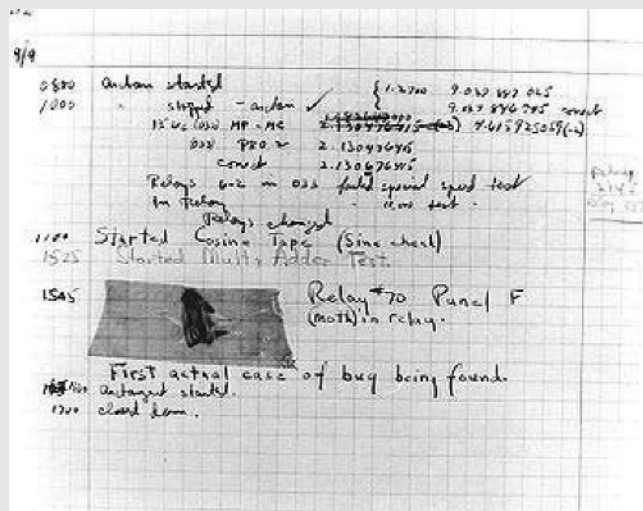 9/9
0800 Antan started { 1.2700 9.037 847 025
1000 " stopped - antan ✓ 9.037 846 795 correct
13"uc (032) MP - MC 2.130476415 4.615925059(-2)
(033) PRO 2 2.130476415
correct 2.130676415
Relays 6-2 in 033 failed special speed test
in Relay " 11.00 test .
Relays changed
1100 Started Cosine Tape (Sine check)
1525 Started Mult + Adder Test.
1545 Relay #70 Panel F
(moth) in relay.
First actual case of bug being found.
1630 antangent started.
1700 closed down.
Relay